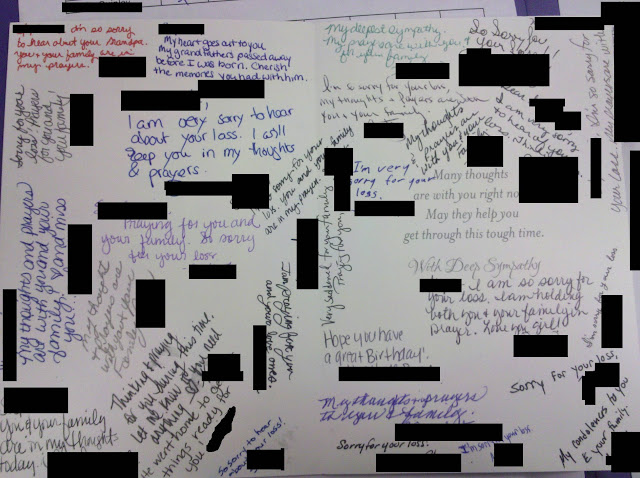 so sorry
to hear about your Grandpa.
You & your family are in
my prayers.
My heart goes out to you
my grandfathers passed away
before I was born. Cherish
the memories you had with him.
Sorry for your
loss! Prayers
for you and
your family!
I am very sorry to hear
about your loss. I will
keep you in my thoughts
& prayers.
so sorry for your
loss. You and your family
are in my prayers
Praying for you and
your family. So sorry
for your loss
My thoughts and prayers
are with you and your
family.
you!
my thoughts
& prayers are
with you & your
Family
I am praying for you
and your loved ones.
Thinking & praying
for you during this time.
Let me know if you need
anything
home to get
things ready for
you
your family
are in my thoughts
today.
So sorry to hear
about your loss!
My deepest sympathy.
My prayers are with you &
your family
So Sorry for
your loss!
I'm so sorry for your loss
my thoughts & prayers are with
you & your family
My thoughts
& prayers are
with you & your
I am very sorry
to hear of
loss.
I'm so sorry for
your loss
I'm very
sorry for your
loss.
Many thoughts
are with you right now
May they help you
get through this tough time.
With Deep Sympathy
I am so sorry for
your loss. I am holding
both you & your family in
prayer. Love you girl!
Hope you have
a great Birthday!
My thoughts & prayers
to you & family.
Sorry for your loss.
I'm sorry for your loss
Sorry for your loss,
My condolences to you
& your family.